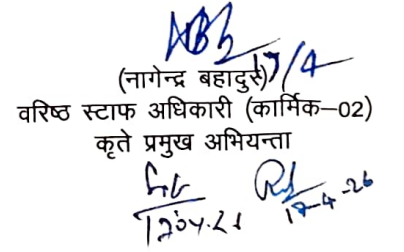 17/4
(नागेन्द्र बहादुर)
वरिष्ठ स्टाफ अधिकारी (कार्मिक–02)
कृते प्रमुख अभियन्ता
17-4-26